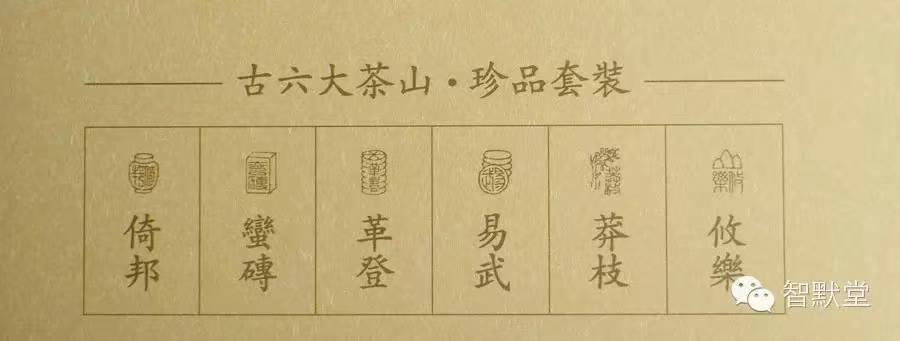 古六大茶山·珍品套裝
倚邦
蠻磚
革登
易武
莽枝
攸樂
智默堂